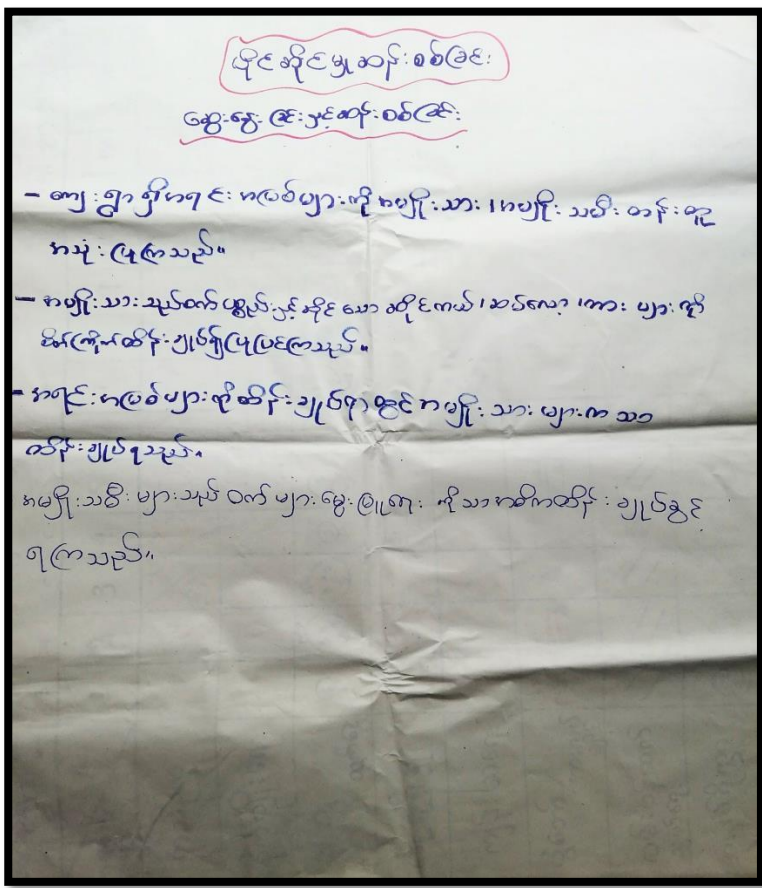 ပိုင်ဆိုင်မှုဆန်းစစ်ခြင်း
ဆွေးနွေးခြင်းနှင့်ဆန်းစစ်ခြင်း
- ကျေးရွာရှိအရင်းအမြစ်များကို အမျိုးသား၊ အမျိုးသမီး တန်းတူ
အသုံးပြုကြသည်။
- အမျိုးသားသည်စက်ပစ္စည်းနှင့်ဆိုင်သော ဆိုင်ကယ်၊ ဆပ်လော့၊ ကား များကို
စိတ်ကြိုက်ထိန်းချုပ်၍ပြုပြင်ကြသည်။
- အရင်းအမြစ်များကိုထိန်းချုပ်ရာတွင်အမျိုးသားများကသာ
ထိန်းချုပ်ရသည်။
အမျိုးသမီးများသည် ဝက်များမွေးမြူရေး ကိုသာအဓိကထိန်းချုပ်ခွင့်
ရကြသည်။